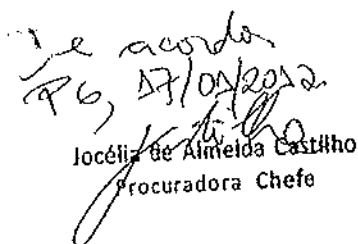 De acordo
PG, 17/01/2012
Jocélia de Almeida Castilho
Procuradora Chefe